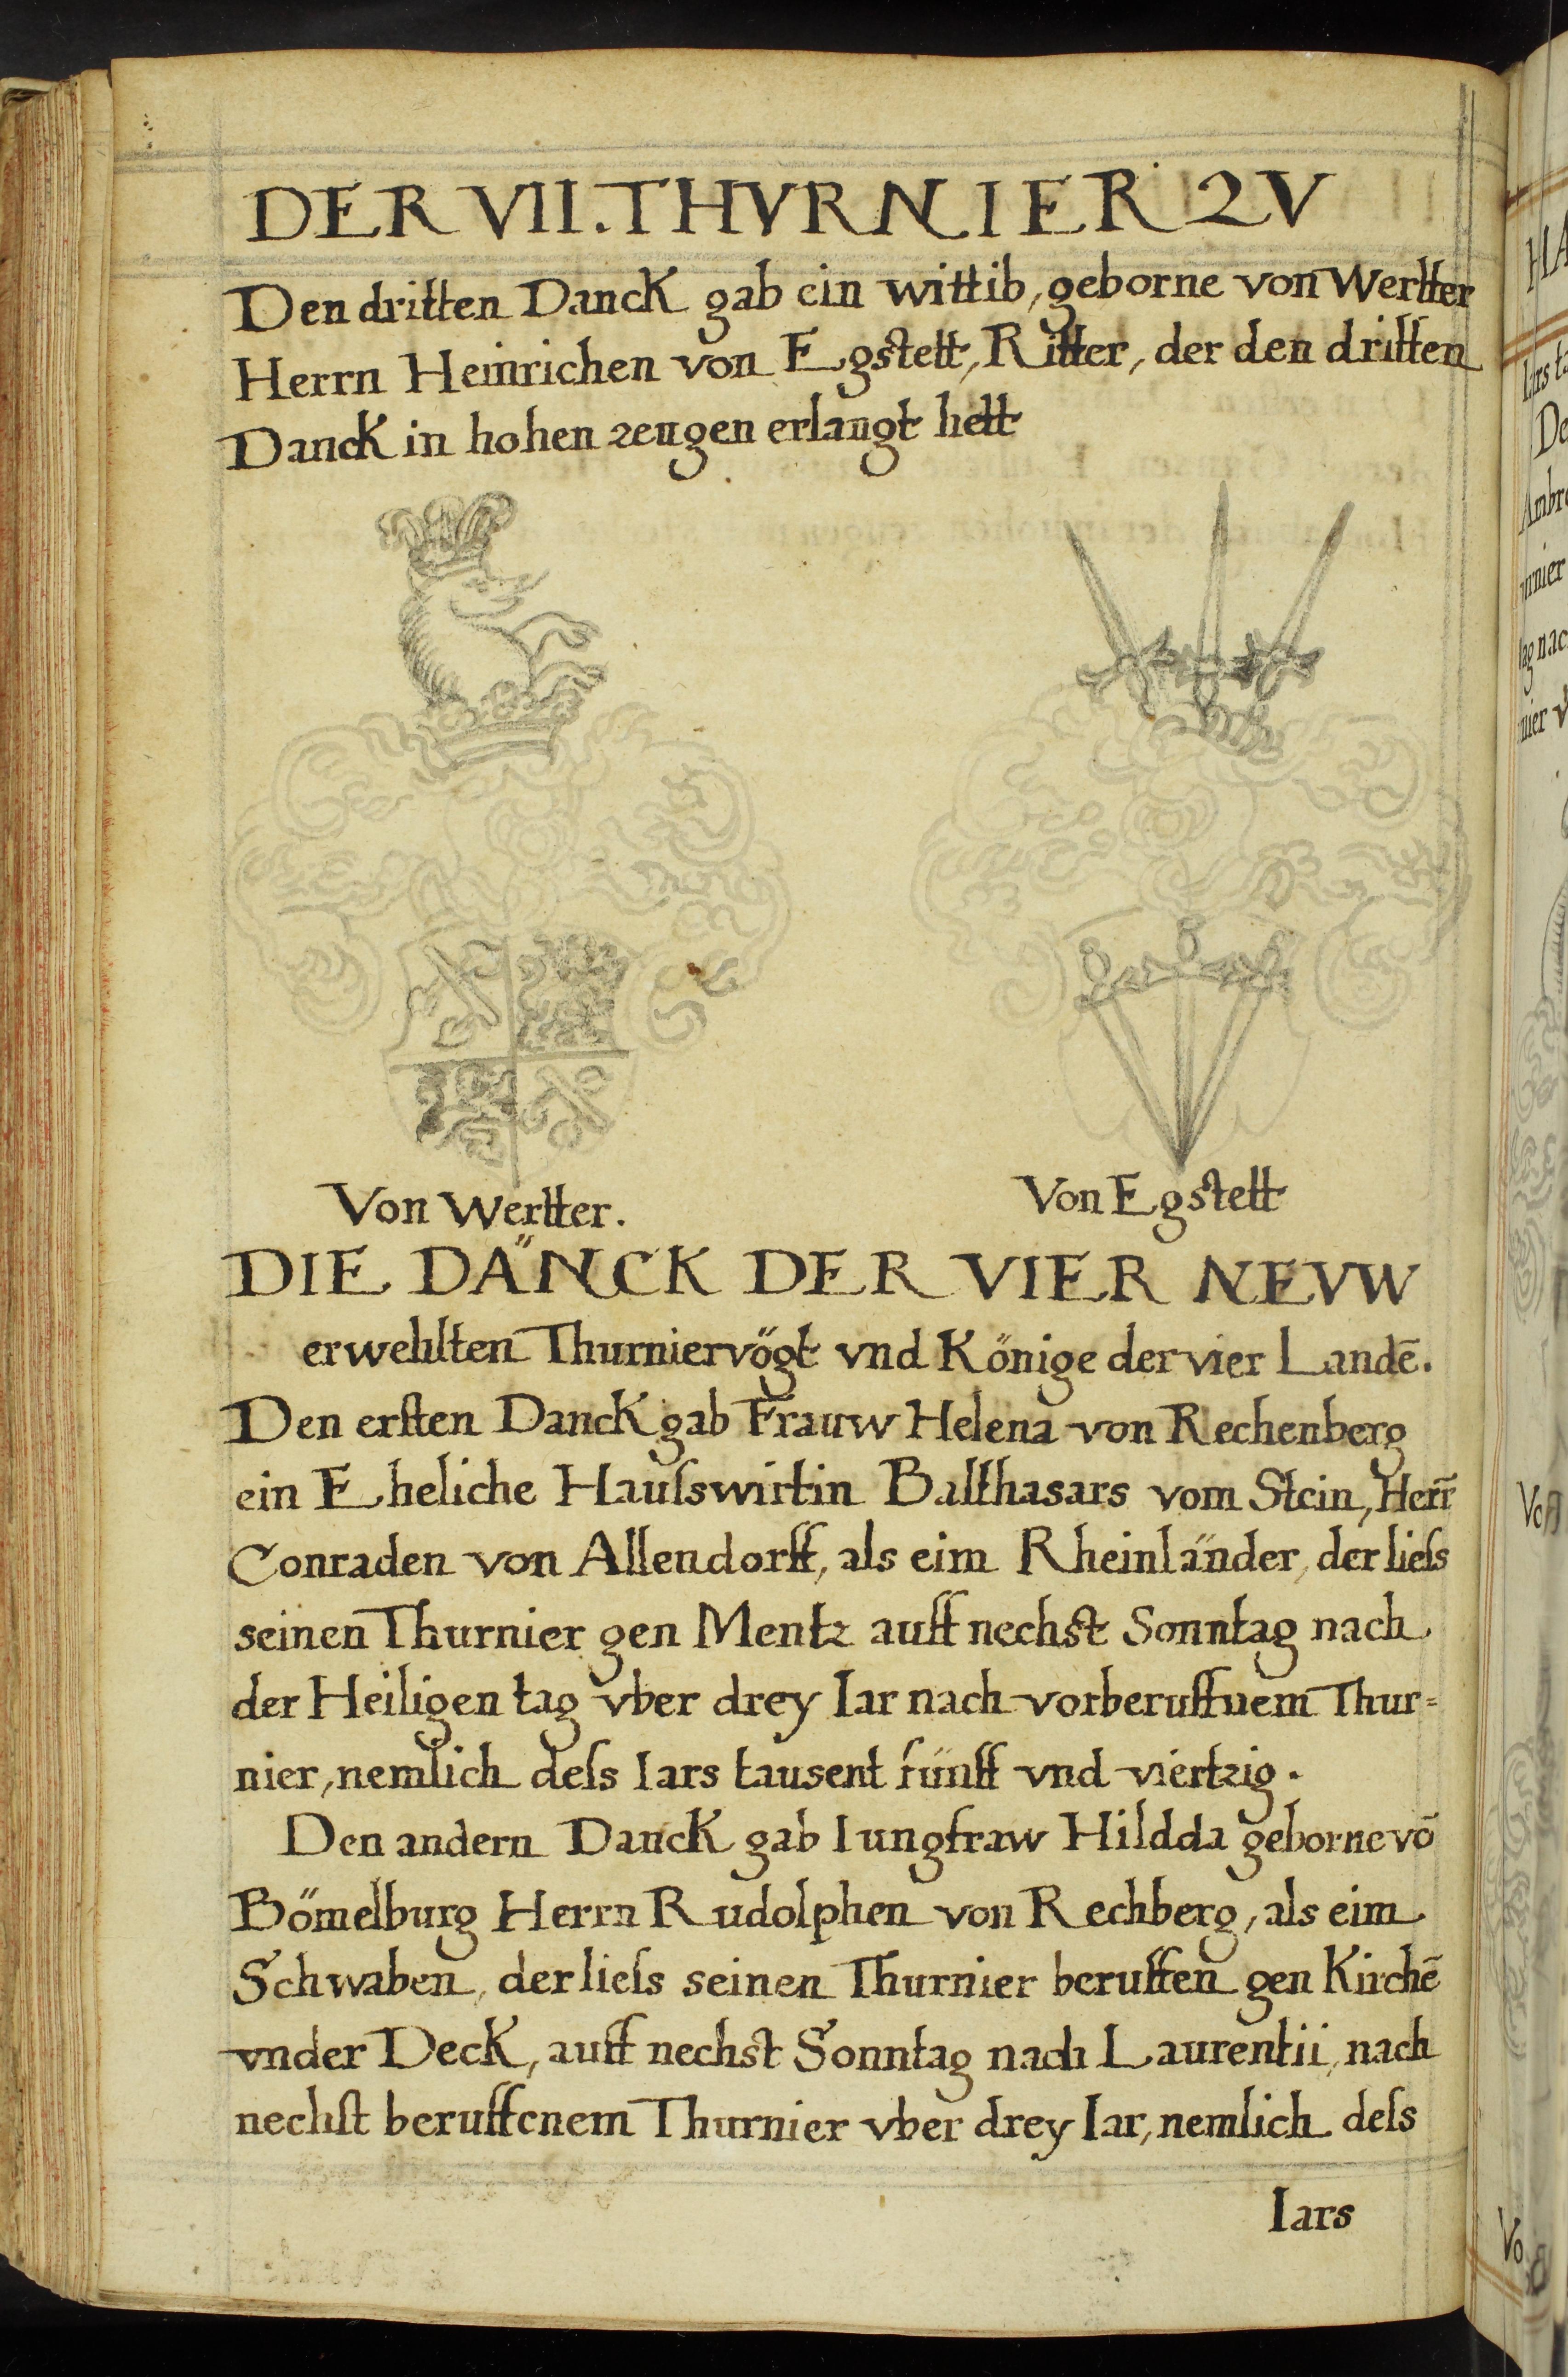 DER VII. THVRNIER ZV
Den dritten Danck gab ein wittib, geborne von Wertter
Herrn Heinrichen von Egstett, Ritter, der den dritten
Danck in hohen zeugen erlangt hett
Von Wertter.
Von Egstett
DIE DÄNCK DER VIER NEVW
erwehlten Thurniervögt vnd Könige der vier Landē.
Den ersten Danck gab Frauw Helena von Rechenberg
ein Eheliche Hauſswirtin Balthasars vom Stein, Herr̄
Conraden von Allendorff, als eim Rheinländer, der lieſs
seinen Thurnier gen Mentz auff nechst Sonntag nach
der Heiligen tag vber drey Iar nach vorberuffnem Thur=
nier, nemlich deſs Iars tausent fünff vnd viertzig.
Den andern Danck gab Iungfraw Hildda geborne vō
Bömelburg Herrn Rudolphen von Rechberg, als eim
Schwaben, der lieſs seinen Thurnier beruffen gen Kirchē
vnder Deck, auff nechst Sonntag nach Laurentii, nach
nechſt beruffenem Thurnier vber drey Iar, nemlich deſs
Iars